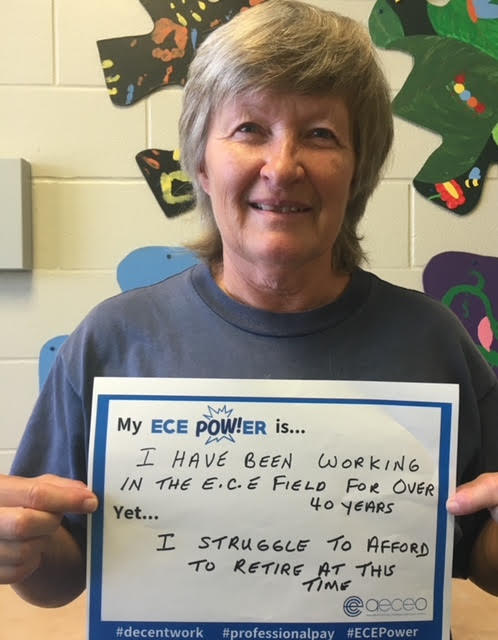 My ECE POW!ER is...
I HAVE BEEN WORKING
IN THE E.C.E FIELD FOR OVER
40 YEARS
Yet...
I STRUGGLE TO AFFORD
TO RETIRE AT THIS
TIME
aeceo
#decentwork #professionalpay #ECEPower